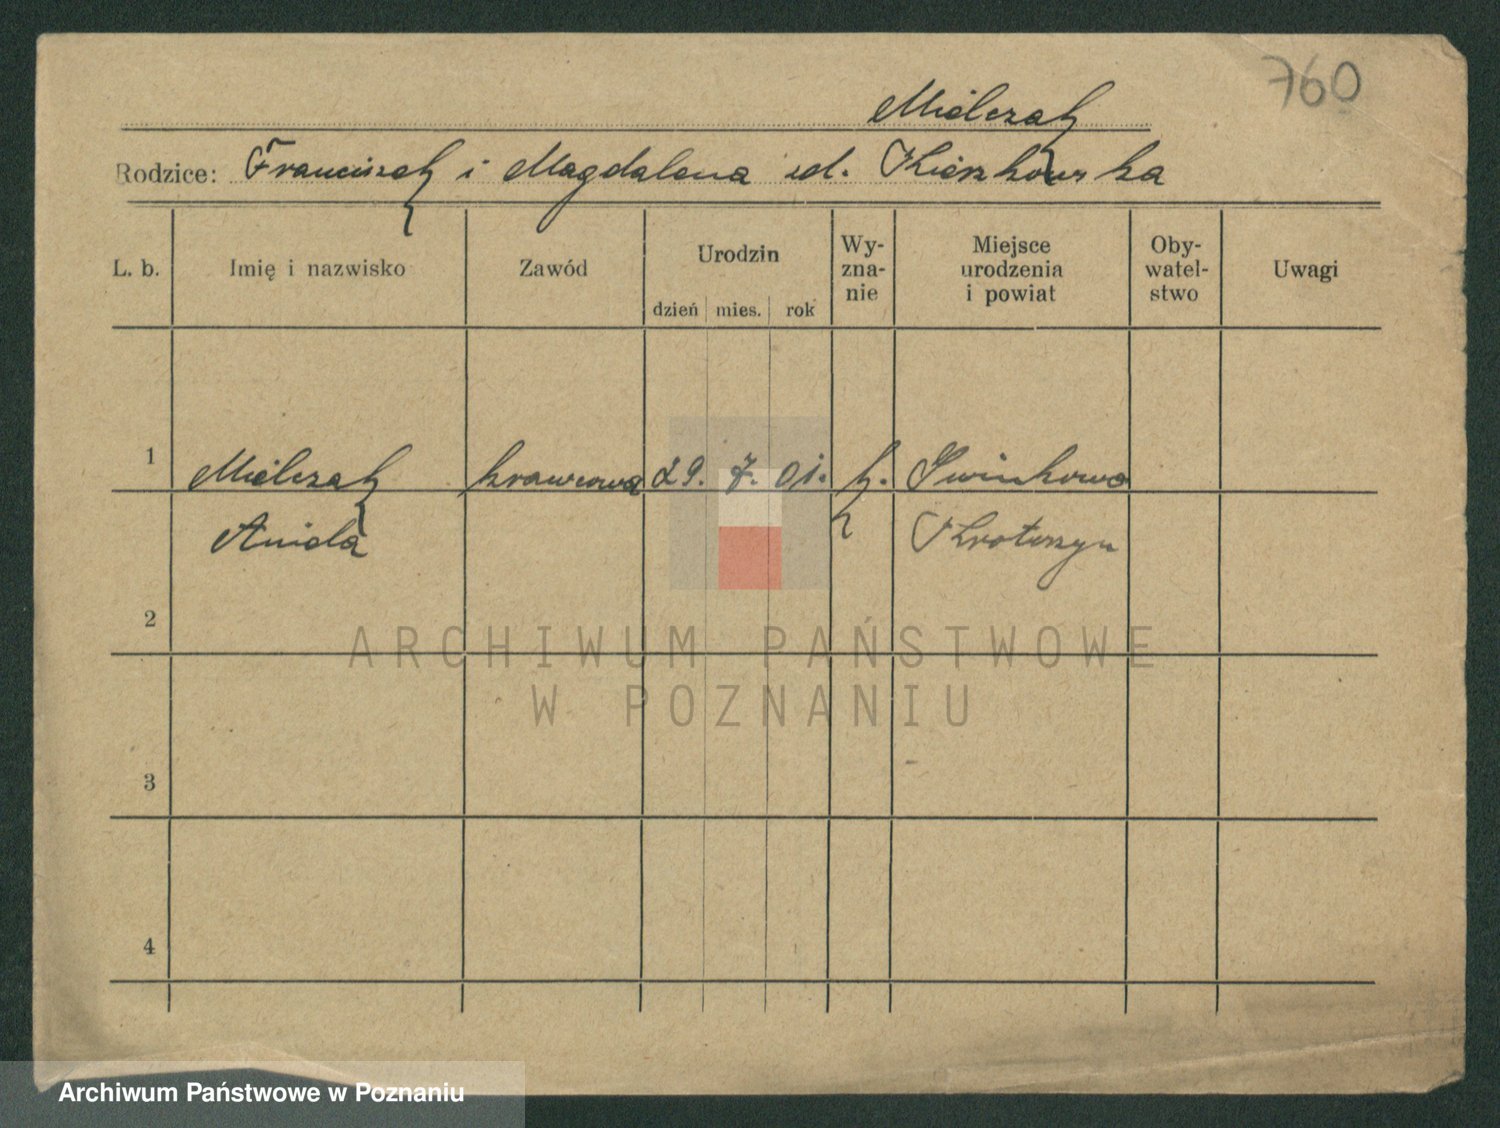 760
Mielczak
Rodzice: Franciszek i Magdalena zd. Kierzkowska
L. b. Imię i nazwisko Zawód Urodzin dzień mies. rok Wy-zna-nie Miejsce urodzenia i powiat Oby-watel-stwo Uwagi
1 Mielczak krawcowa 29. 7. 01. k. Świnkowo
Aniela Krotoszyn
2
ARCHIWUM PAŃSTWOWE
W POZNANIU
3
4
Archiwum Państwowe w Poznaniu